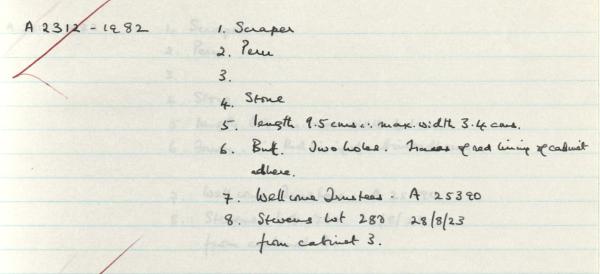 A 2312 - 1982
1. Scraper
2. Peru
3.
4. Stone
5. length 9.5 cms. max. width 3.4 cms.
6. Buff. Two holes. Traces of red lining of cabinet
adhere.
7. Wellcome Trustees. A 25390
8. Stevens Lot 280 28/8/23
from cabinet 3.